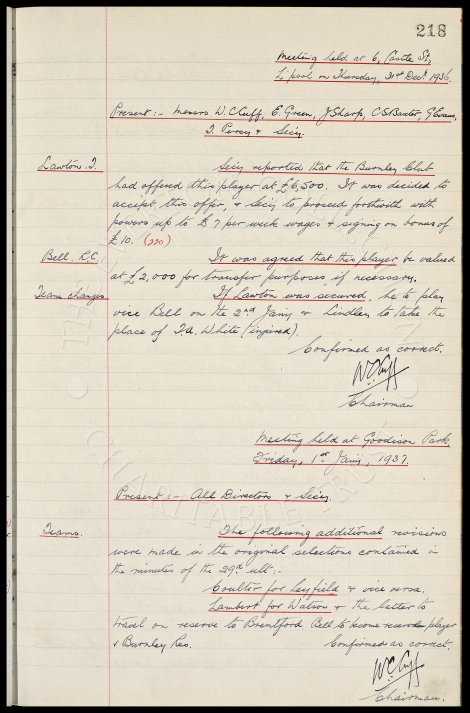 218
Meeting held at 6, Castle St,
L'pool on Thursday, 31st Decr. 1936.
Present :- Messrs W.C. Cuff, E. Green, J Sharp, C S Baxter, G Evans,
T Percy & Secy.
Lawton. T. Secy reported that the Burnley Club
had offered this player at £6,500. It was decided to
accept this offer & Secy to proceed forthwith with
powers up to £7 per week wages & signing on bonus of
£10. (220)
Bell. R.C. It was agreed that this player be valued
at £2,000 for transfer purposes, if necessary.
Team changes If Lawton was secured, he to play
vice Bell on the 2nd Jany & Lindley to take the
place of T.A. White (injured).
Confirmed as correct.
W C Cuff
Chairman
Meeting held at Goodison Park,
Friday, 1st Jany, 1937.
Present :- All Directors & Secy.
Teams. The following additional revisions
were made in the original selections contained in
the minutes of the 29th ult :-
Coulter for Leyfield & vice versa.
Lambert for Watson & the latter to
travel as reserve to Brentford Bell to become reserve player
v Burnley Res. Confirmed as correct.
W C Cuff
Chairman.